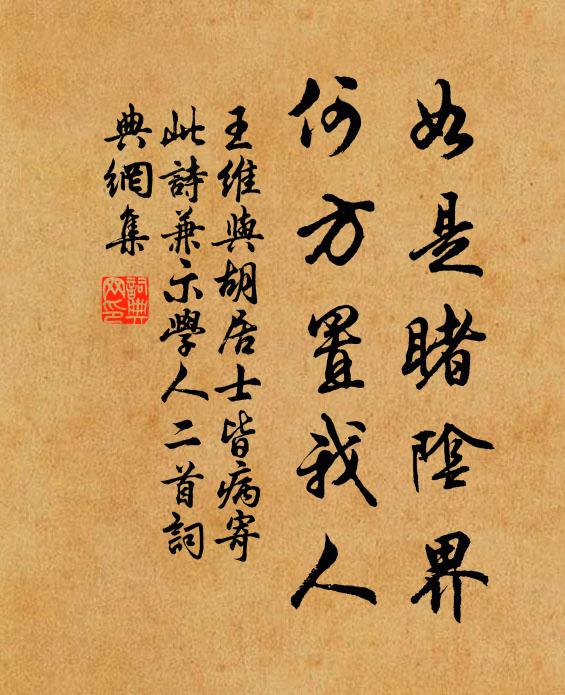 如是睹陰界
何方置我人
王維與胡居士皆病寄
此詩兼示學人二首詞
典網集
詞典
网印